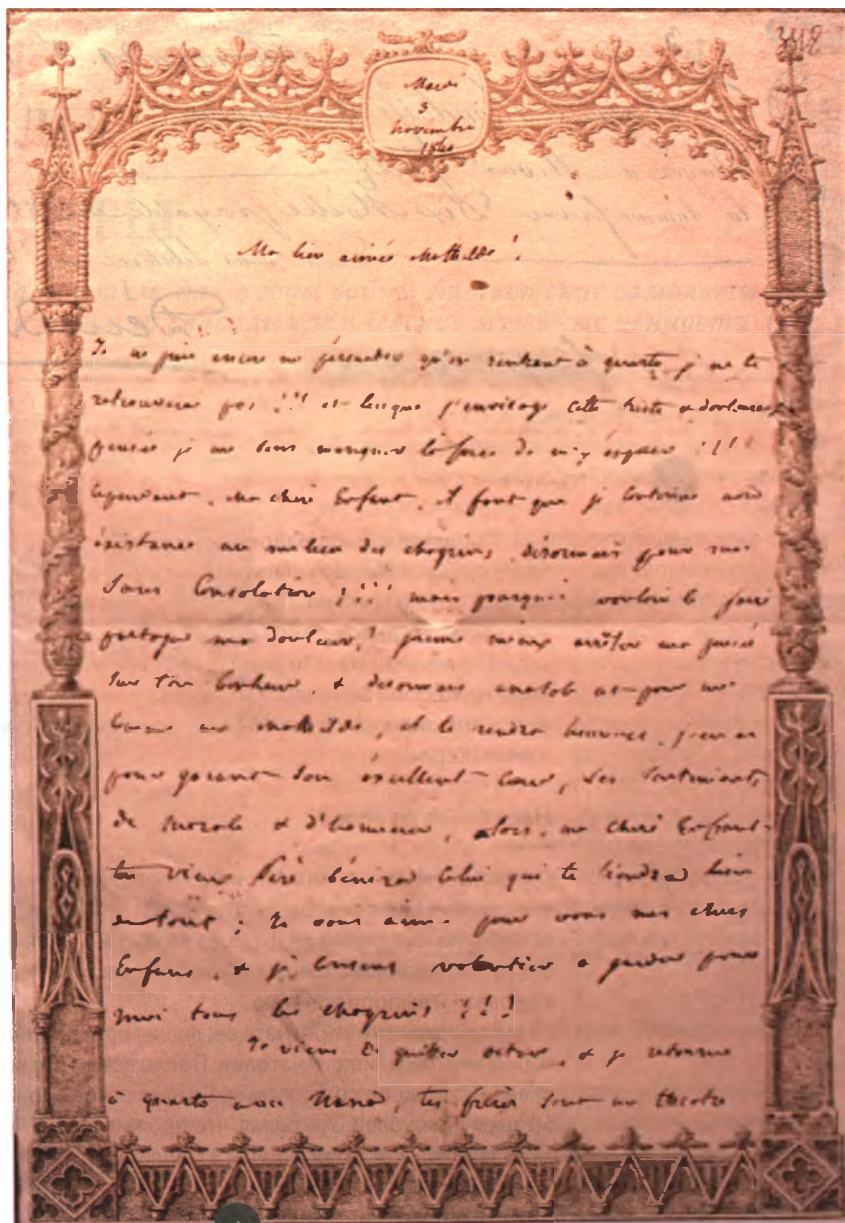 348
Mardi
3
Novembre
1840
Ma bien aimée Mathilde !
Je ne puis encore me persuader qu'en rentrant à quarto, je ne te
retrouverai pas !!! et lorsque j'envisage cette triste & douloureuse
pensée je me sens manquer la force de m'y !!!
Cependant, ma chère Enfant, il faut que je continue mon
éxistance au milieu des chagrins, désormais pour moi
Sans Consolation !!! mais pourquoi vouloir te faire
partager ma douleur, j'aime mieux arrêter ma pensée
Sur ton bonheur, & désormais anatole est pour moi
comme ma Mathilde, il te rendra heureuse, j'en ai
pour garant Son éxcellent Cœur, Ses Sentiments
de Morale & d'honneur, alors, ma chère Enfant
ton vieux Père bénira Celui qui te tiendra lieu
de tout ; Je vous aime pour vous mes chers
Enfans, & je Consens volontier a garder pour
moi tous les chagrins !!!
Je viens de quitter & je retourne
à quarto avec tes frères Sont au théatre